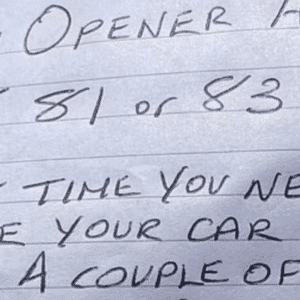 OPENER
81 or 83
TIME YOU NE
E YOUR CAR
A COUPLE OF